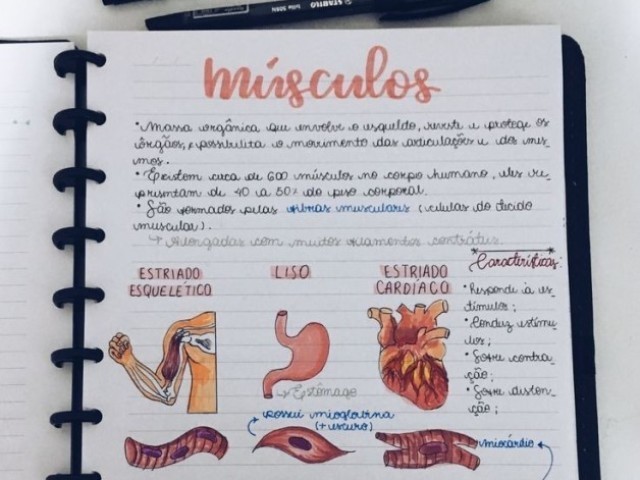 STABILO
músculos
• Massa orgânica que envolve o esqueleto, reveste e protege os
órgãos, e possibilita o movimento das articulações e dos mes
mos.
• Existem cerca de 600 músculos no corpo humano, eles re
presentam de 40 a 50% do peso corporal.
• São formados pelas fibras musculares (células do tecido
muscular).
↳ Alongadas com muitos filamentos contráteis
Características:
ESTRIADO
ESQUELÉTICO
LISO
ESTRIADO
CARDÍACO
• Responde à es
tímulos;
• Conduz estímu
los;
• Sofre contra
ção;
• Sofre disten
ção;
↳ Estômago
possui mioglobina
(+ escuro)
miocárdio